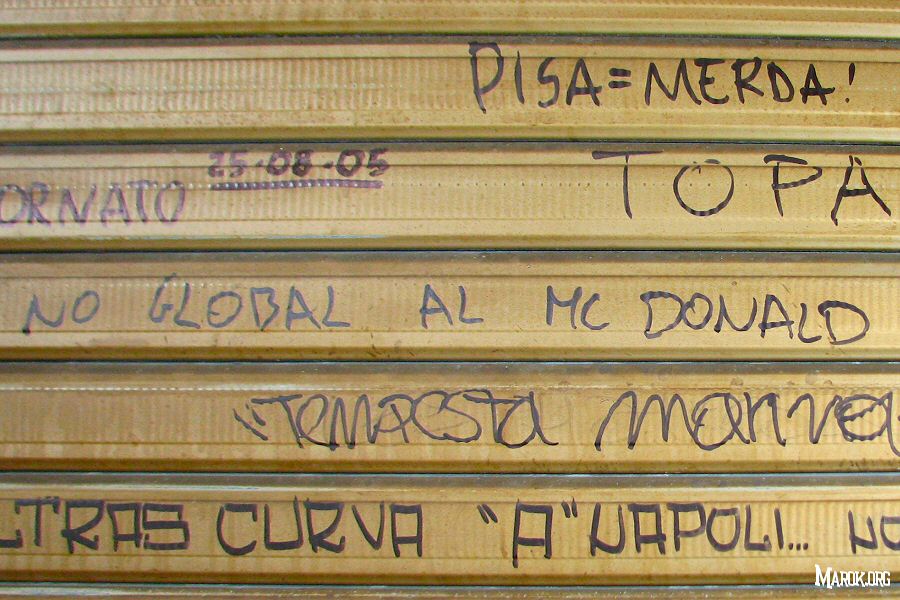 PISA=MERDA!
25-08-05
ORNATO TOPA
NO GLOBAL AL MC DONALD
"TEMPESTA
LTRAS CURVA "A" NAPOLI... NO
MAROK.ORG